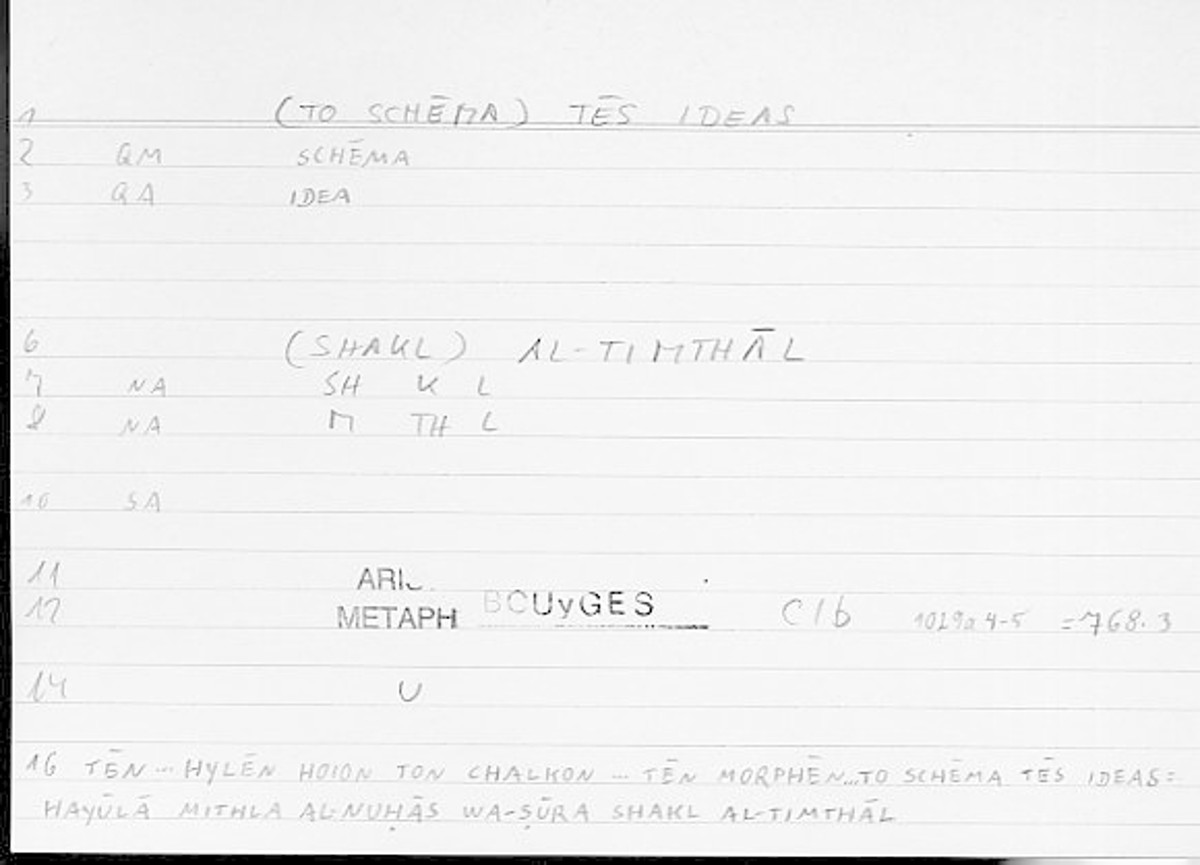 1 (TO SCHĒMA) TĒS IDEAS
2 QM SCHĒMA
3 QA IDEA
6 (SHAKL) AL-TIMTHĀL
7 NA SH K L
8 NA M TH L
10 SA
11 ARI
12 METAPH BOUyGES C1b 1029a4-5 =768.3
14 U
16 TĒN... HYLĒN HOION TON CHALKON ... TĒN MORPHĒN...TO SCHĒMA TĒS IDEAS=
HAYŪLĀ MITHLA AL-NUḤĀS WA-ṢŪRA SHAKL AL-TIMTHĀL